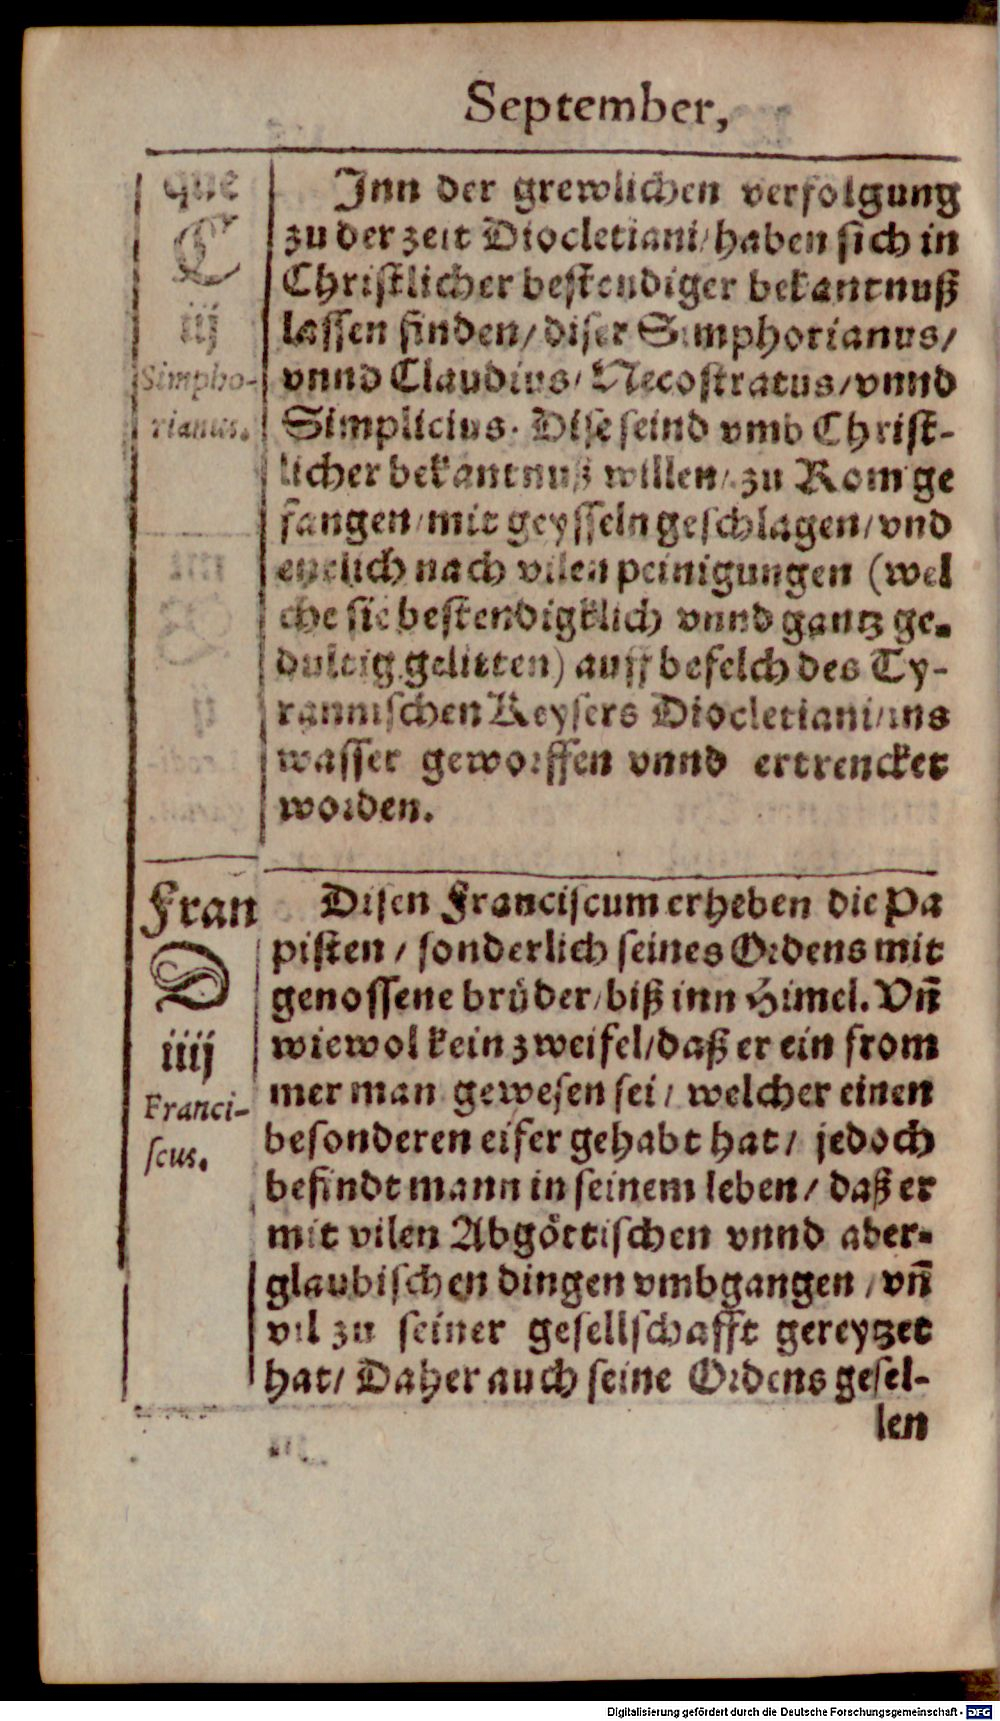 September,
que
C
iij
Simpho-
rianus.
Jnn der grewlichen verfolgung
zu der zeit Diocletiani/ haben sich in
Christlicher bestendiger bekantnuß
lassen finden/ diser Simphorianus/
vnnd Claudius/ Necostratus/ vnnd
Simplicius. Dise seind vmb Christ-
licher bekantnuß willen/ zu Rom ge
fangen/ mit geysseln geschlagen/ vnd
entlich nach vilen peinigungen (wel
che sie bestendigklich vnnd gantz ge-
dultig gelitten) auff befelch des Ty-
rannischen Keysers Diocletiani/ ins
wasser geworffen vnnd ertrencket
worden.
Fran
D
iiij
Franci-
scus.
Disen Franciscum erheben die Pa
pisten / sonderlich seines Ordens mit
genossene brüder/ biß inn Himel. Vñ
wiewol kein zweifel/ daß er ein from
mer man gewesen sei / welcher einen
besonderen eifer gehabt hat / jedoch
befindt mann in seinem leben / daß er
mit vilen Abgöttischen vnnd aber-
glaubischen dingen vmbgangen / vñ
vil zu seiner gesellschafft gereytzet
hat/ Daher auch seine Ordens gesel-
len
Digitalisierung gefördert durch die Deutsche Forschungsgemeinschaft - DFG